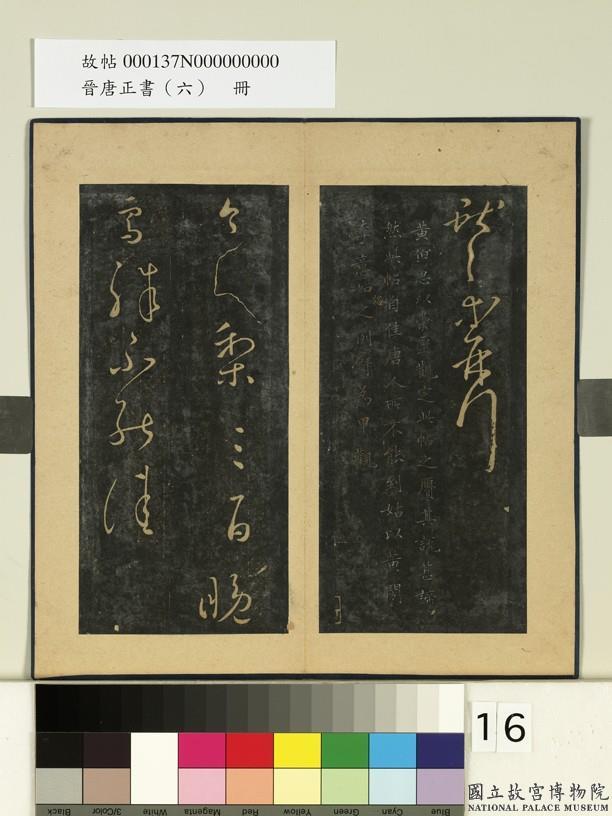 故帖 000137N000000000
晉唐正書（六） 冊
獻之
黃伯思以定此帖之贗其說甚
然此帖自佳唐人所不能到姑以黃
之側為甲觀
今送梨三百晚
雪殊不能佳
16
Black 3/Color White Magenta Red Yellow Green Cyan Blue
國立故宮博物院
NATIONAL PALACE MUSEUM